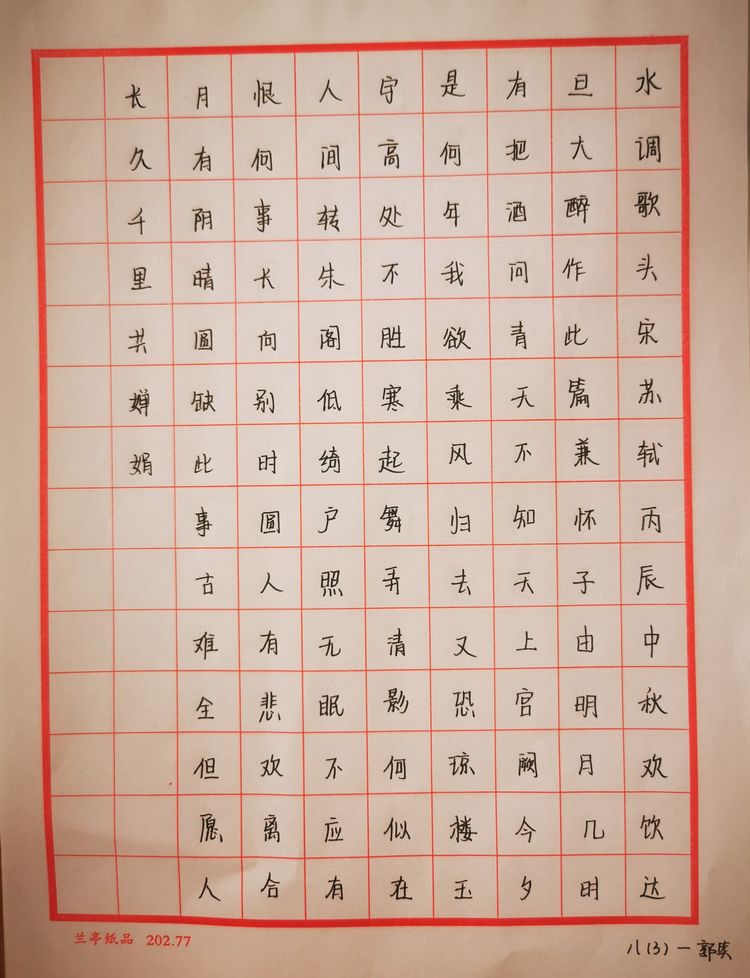 水调歌头宋苏轼丙辰中秋欢饮达
旦大醉作此篇兼怀子由明月几时
有把酒问青天不知天上宫阙今夕
是何年我欲乘风归去又恐琼楼玉
宇高处不胜寒起舞弄清影何似在
人间转朱阁低绮户照无眠不应有
恨何事长向别时圆人有悲欢离合
月有阴晴圆缺此事古难全但愿人
长久千里共婵娟
兰亭纸品 202.77
八(3)一郭